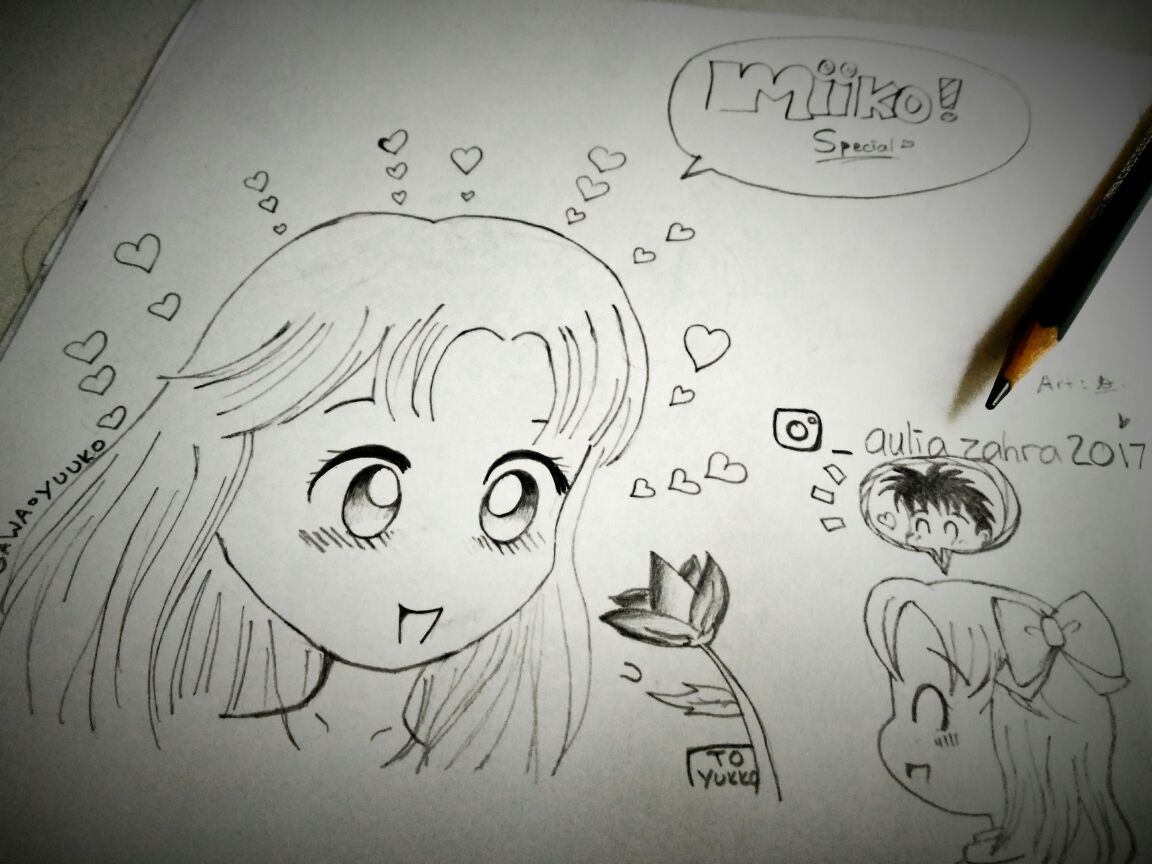 Miiko!
Special
Art:
_auliazahra2017
OGAWA YUUKO
TO
YUKKO